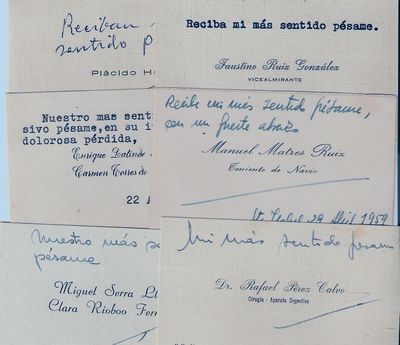 Reciban
sentido p
Plácido H
Reciba mi más sentido pésame.
Faustino Ruiz González
VICEALMIRANTE
Nuestro mas sent
sivo pésame,en su i
dolorosa pérdida,
Enrique Dalinde
Carmen Torres de
22 A
Recibe mi más sentido pésame,
con un fuerte abrazo
Manuel Matres Ruiz
Teniente de Navío
Sta Isabel 29 Abril 1959
Nuestro más se
pésame
Miguel Serra Ll
Clara Rioboo Ferr
Mi más sentido pésame
Dr. Rafael Pérez Calvo
Cirugía - Aparato Digestivo